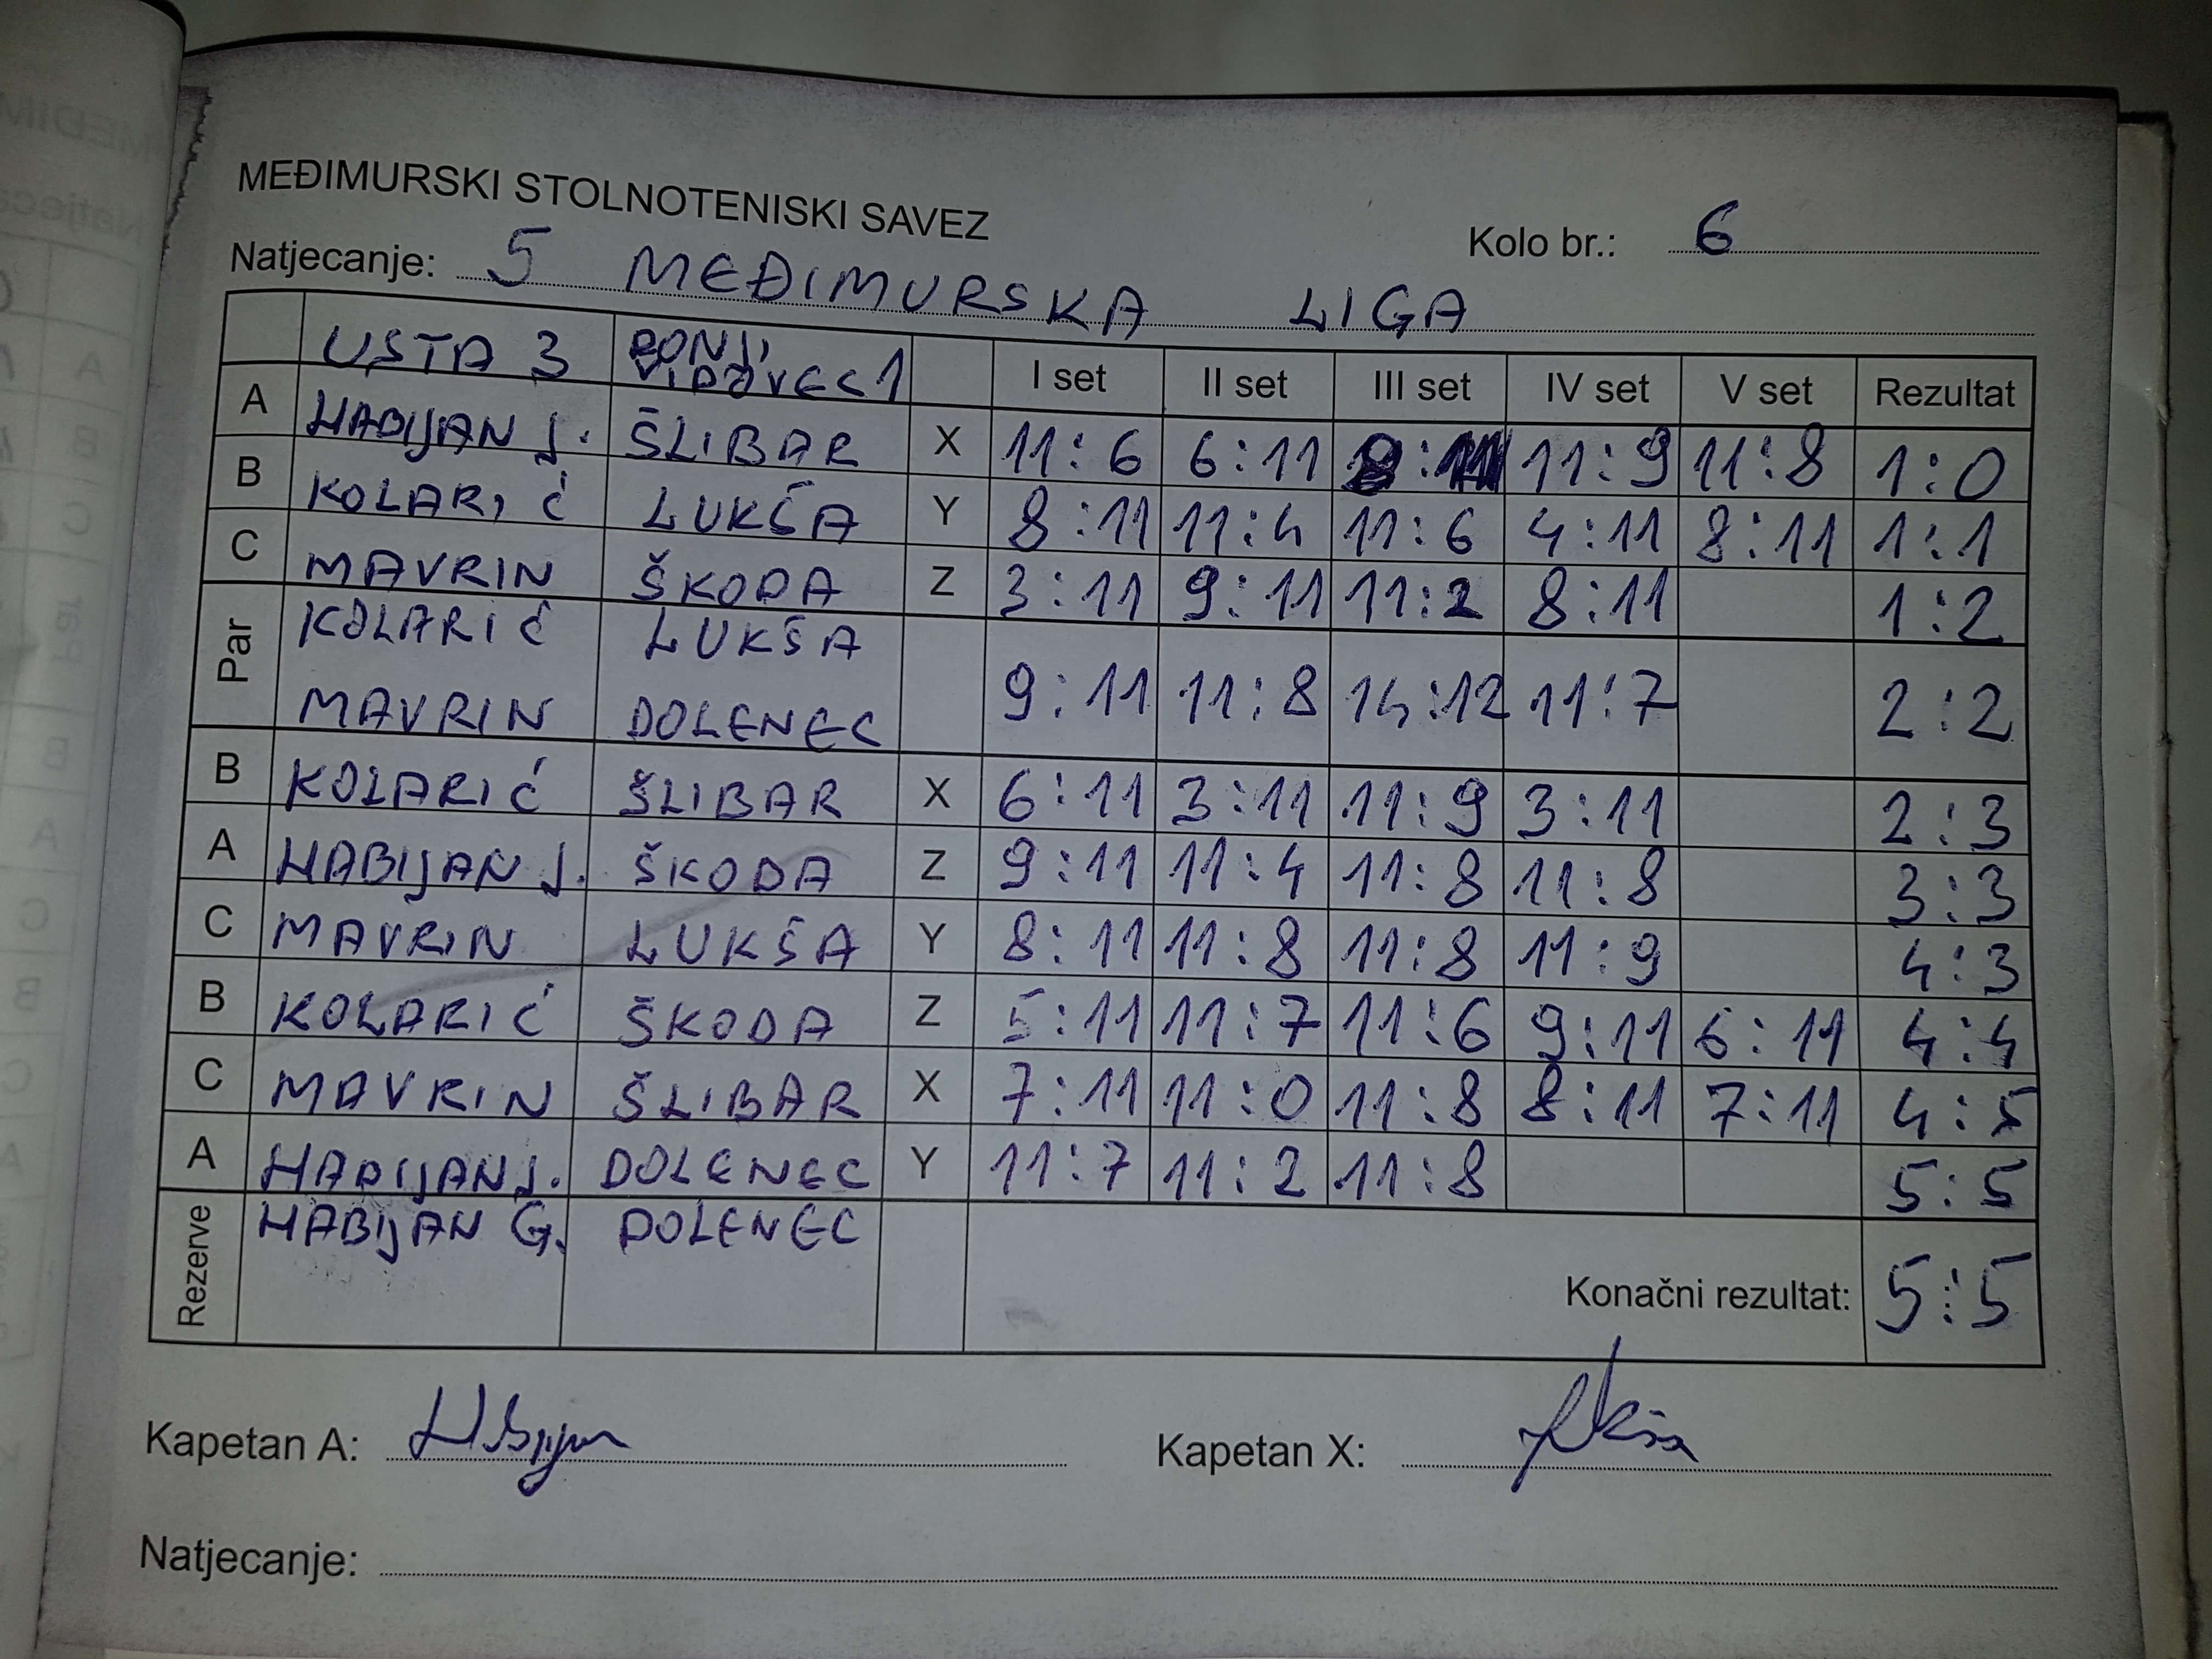 MEĐIMURSKI STOLNOTENISKI SAVEZ
Kolo br.: 6
Natjecanje: 5 MEĐIMURSKA LIGA
USTA 3 DONJ. VIDOVEC 1 I set II set III set IV set V set Rezultat
A HABIJAN J. ŠLIBAR X 11:6 6:11 11:9 11:8 1:0
B KOLARIĆ LUKŠA Y 8:11 11:4 11:6 4:11 8:11 1:1
C MAVRIN ŠKODA Z 3:11 9:11 11:2 8:11 1:2
Par KOLARIĆ LUKŠA
MAVRIN DOLENEC 9:11 11:8 14:12 11:7 2:2
B KOLARIĆ ŠLIBAR X 6:11 3:11 11:9 3:11 2:3
A HABIJAN J. ŠKODA Z 9:11 11:4 11:8 11:8 3:3
C MAVRIN LUKŠA Y 8:11 11:8 11:8 11:9 4:3
B KOLARIĆ ŠKODA Z 5:11 11:7 11:6 9:11 6:11 4:4
C MAVRIN ŠLIBAR X 7:11 11:0 11:8 8:11 7:11 4:5
A HABIJAN J. DOLENEC Y 11:7 11:2 11:8 5:5
Rezerve HABIJAN G. DOLENEC
Konačni rezultat: 5:5
Kapetan A: Kapetan X:
Natjecanje: